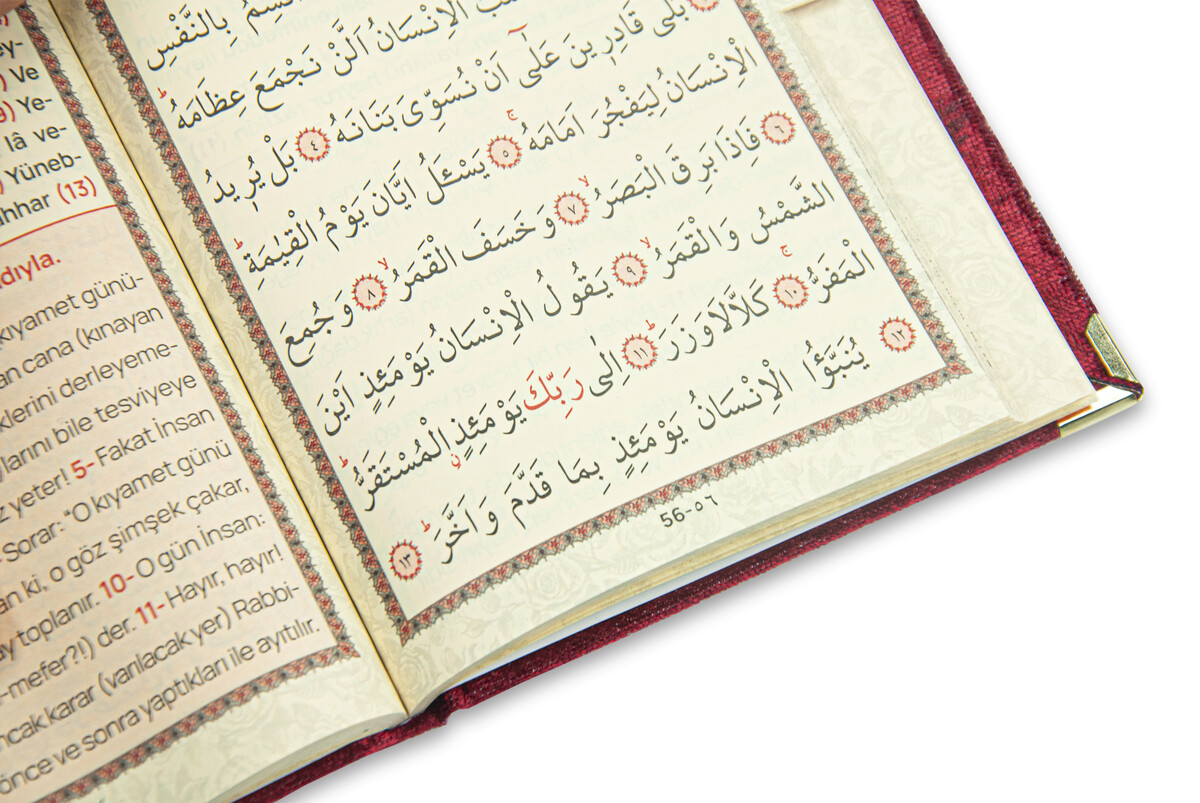 بِالنَّفْسِ
الْاِنْسَانُ اَلَّنْ نَجْمَعَ عِظَامَهُۜ
بَلٰى قَادِر۪ينَ عَلٰٓى اَنْ نُسَوِّىَ بَنَانَهُ ﴿٤﴾ بَلْ يُر۪يدُ
الْاِنْسَانُ لِيَفْجُرَ اَمَامَهُۚ ﴿٥﴾ يَسْـَٔلُ اَيَّانَ يَوْمُ الْقِيٰمَةِۜ
﴿٦﴾ فَاِذَا بَرِقَ الْبَصَرُۙ ﴿٧﴾ وَخَسَفَ الْقَمَرُۙ ﴿٨﴾ وَجُمِعَ
الشَّمْسُ وَالْقَمَرُۙ ﴿٩﴾ يَقُولُ الْاِنْسَانُ يَوْمَئِذٍ اَيْنَ
الْمَفَرُّۚ ﴿١٠﴾ كَلَّا لَا وَزَرَۜ ﴿١١﴾ اِلٰى رَبِّكَ يَوْمَئِذٍۨ الْمُسْتَقَرُّۜ
﴿١٢﴾ يُنَبَّؤُا الْاِنْسَانُ يَوْمَئِذٍ بِمَا قَدَّمَ وَاَخَّرَۜ ﴿١٣﴾
56-٥٦
ey-
) Ve
9) Ye-
lâ ve-
) Yüneb-
hhar (13)
dıyla.
kıyamet günü-
an cana (kınayan
klerini derleyeme-
larını bile tesviyeye
z yeter! 5- Fakat İnsan
Sorar: “O kıyamet günü
an ki, o göz şimşek çakar,
ay toplanır. 10- O gün İnsan:
-mefer?!) der. 11- Hayır, hayır!
ncak karar (varılacak yer) Rabbi-
önce ve sonra yaptıkları ile ayıtılır.